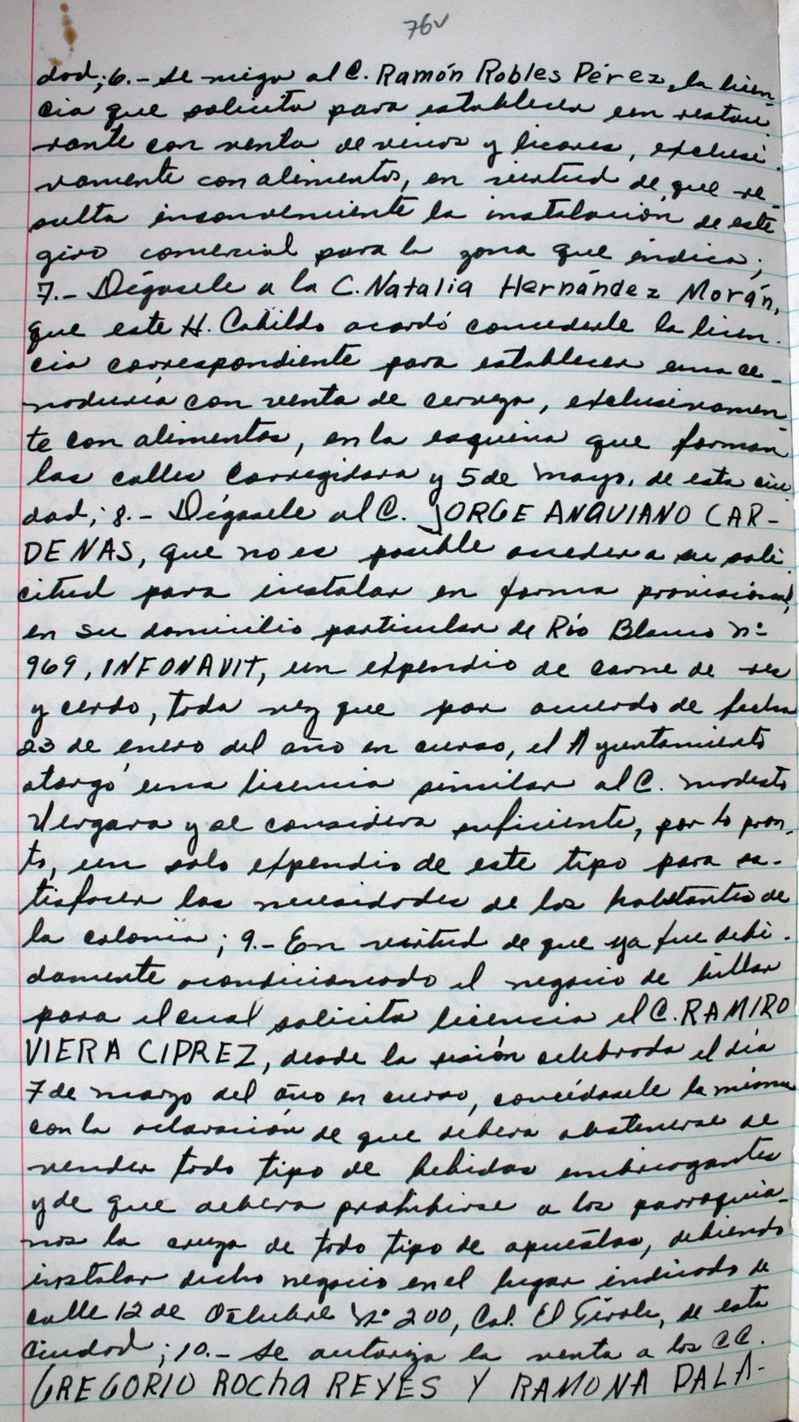 76v
dad; 6.- Se niega al C. Ramón Robles Pérez, la licen-
cia que solicita para establecer un restau-
rante con venta de vinos y licores, exclusi-
vamente con alimentos, en virtud de que re-
sulta inconveniente la instalación de este
giro comercial para la zona que indica;
7.- Dígasele a la C. Natalia Hernández Morán,
que este H. Cabildo acordó concederle la licen-
cia correspondiente para establecer una ce-
naduría con venta de cerveza, exclusivamen-
te con alimentos, en la esquina que forman
las calles Corregidora y 5 de Mayo, de esta ciu
dad; 8.- Dígasele al C. JORGE ANGUIANO CAR-
DENAS, que no es posible acceder a su soli
citud para instalar en forma provisional,
en su domicilio particular de Río Blanco Nº
969, INFONAVIT, un expendio de carne de res
y cerdo, toda vez que por acuerdo de fecha
23 de enero del año en curso, el Ayuntamiento
otorgó una licencia similar al C. Modesto
Vergara y se considera suficiente, por lo pron-
to, un solo expendio de este tipo para sa-
tisfacer las necesidades de los habitantes de
la colonia; 9.- En virtud de que ya fue debi-
damente acondicionado el negocio de billar
para el cual solicita licencia el C. RAMIRO
VIERA CIPREZ, desde la sesión celebrada el día
7 de marzo del año en curso, concédasele la misma
con la aclaración de que deberá abstenerse de
vender todo tipo de bebidas embriagantes
y de que deberá prohibirse a los parroquia-
nos la cruza de todo tipo de apuestas, debiendo
instalar dicho negocio en el lugar indicado de
calle 12 de Octubre Nº 200, Col. El Tívoli, de esta
Ciudad; 10.- Se autoriza la venta a los CC.
GREGORIO ROCha REYES Y RAMONA PALA-